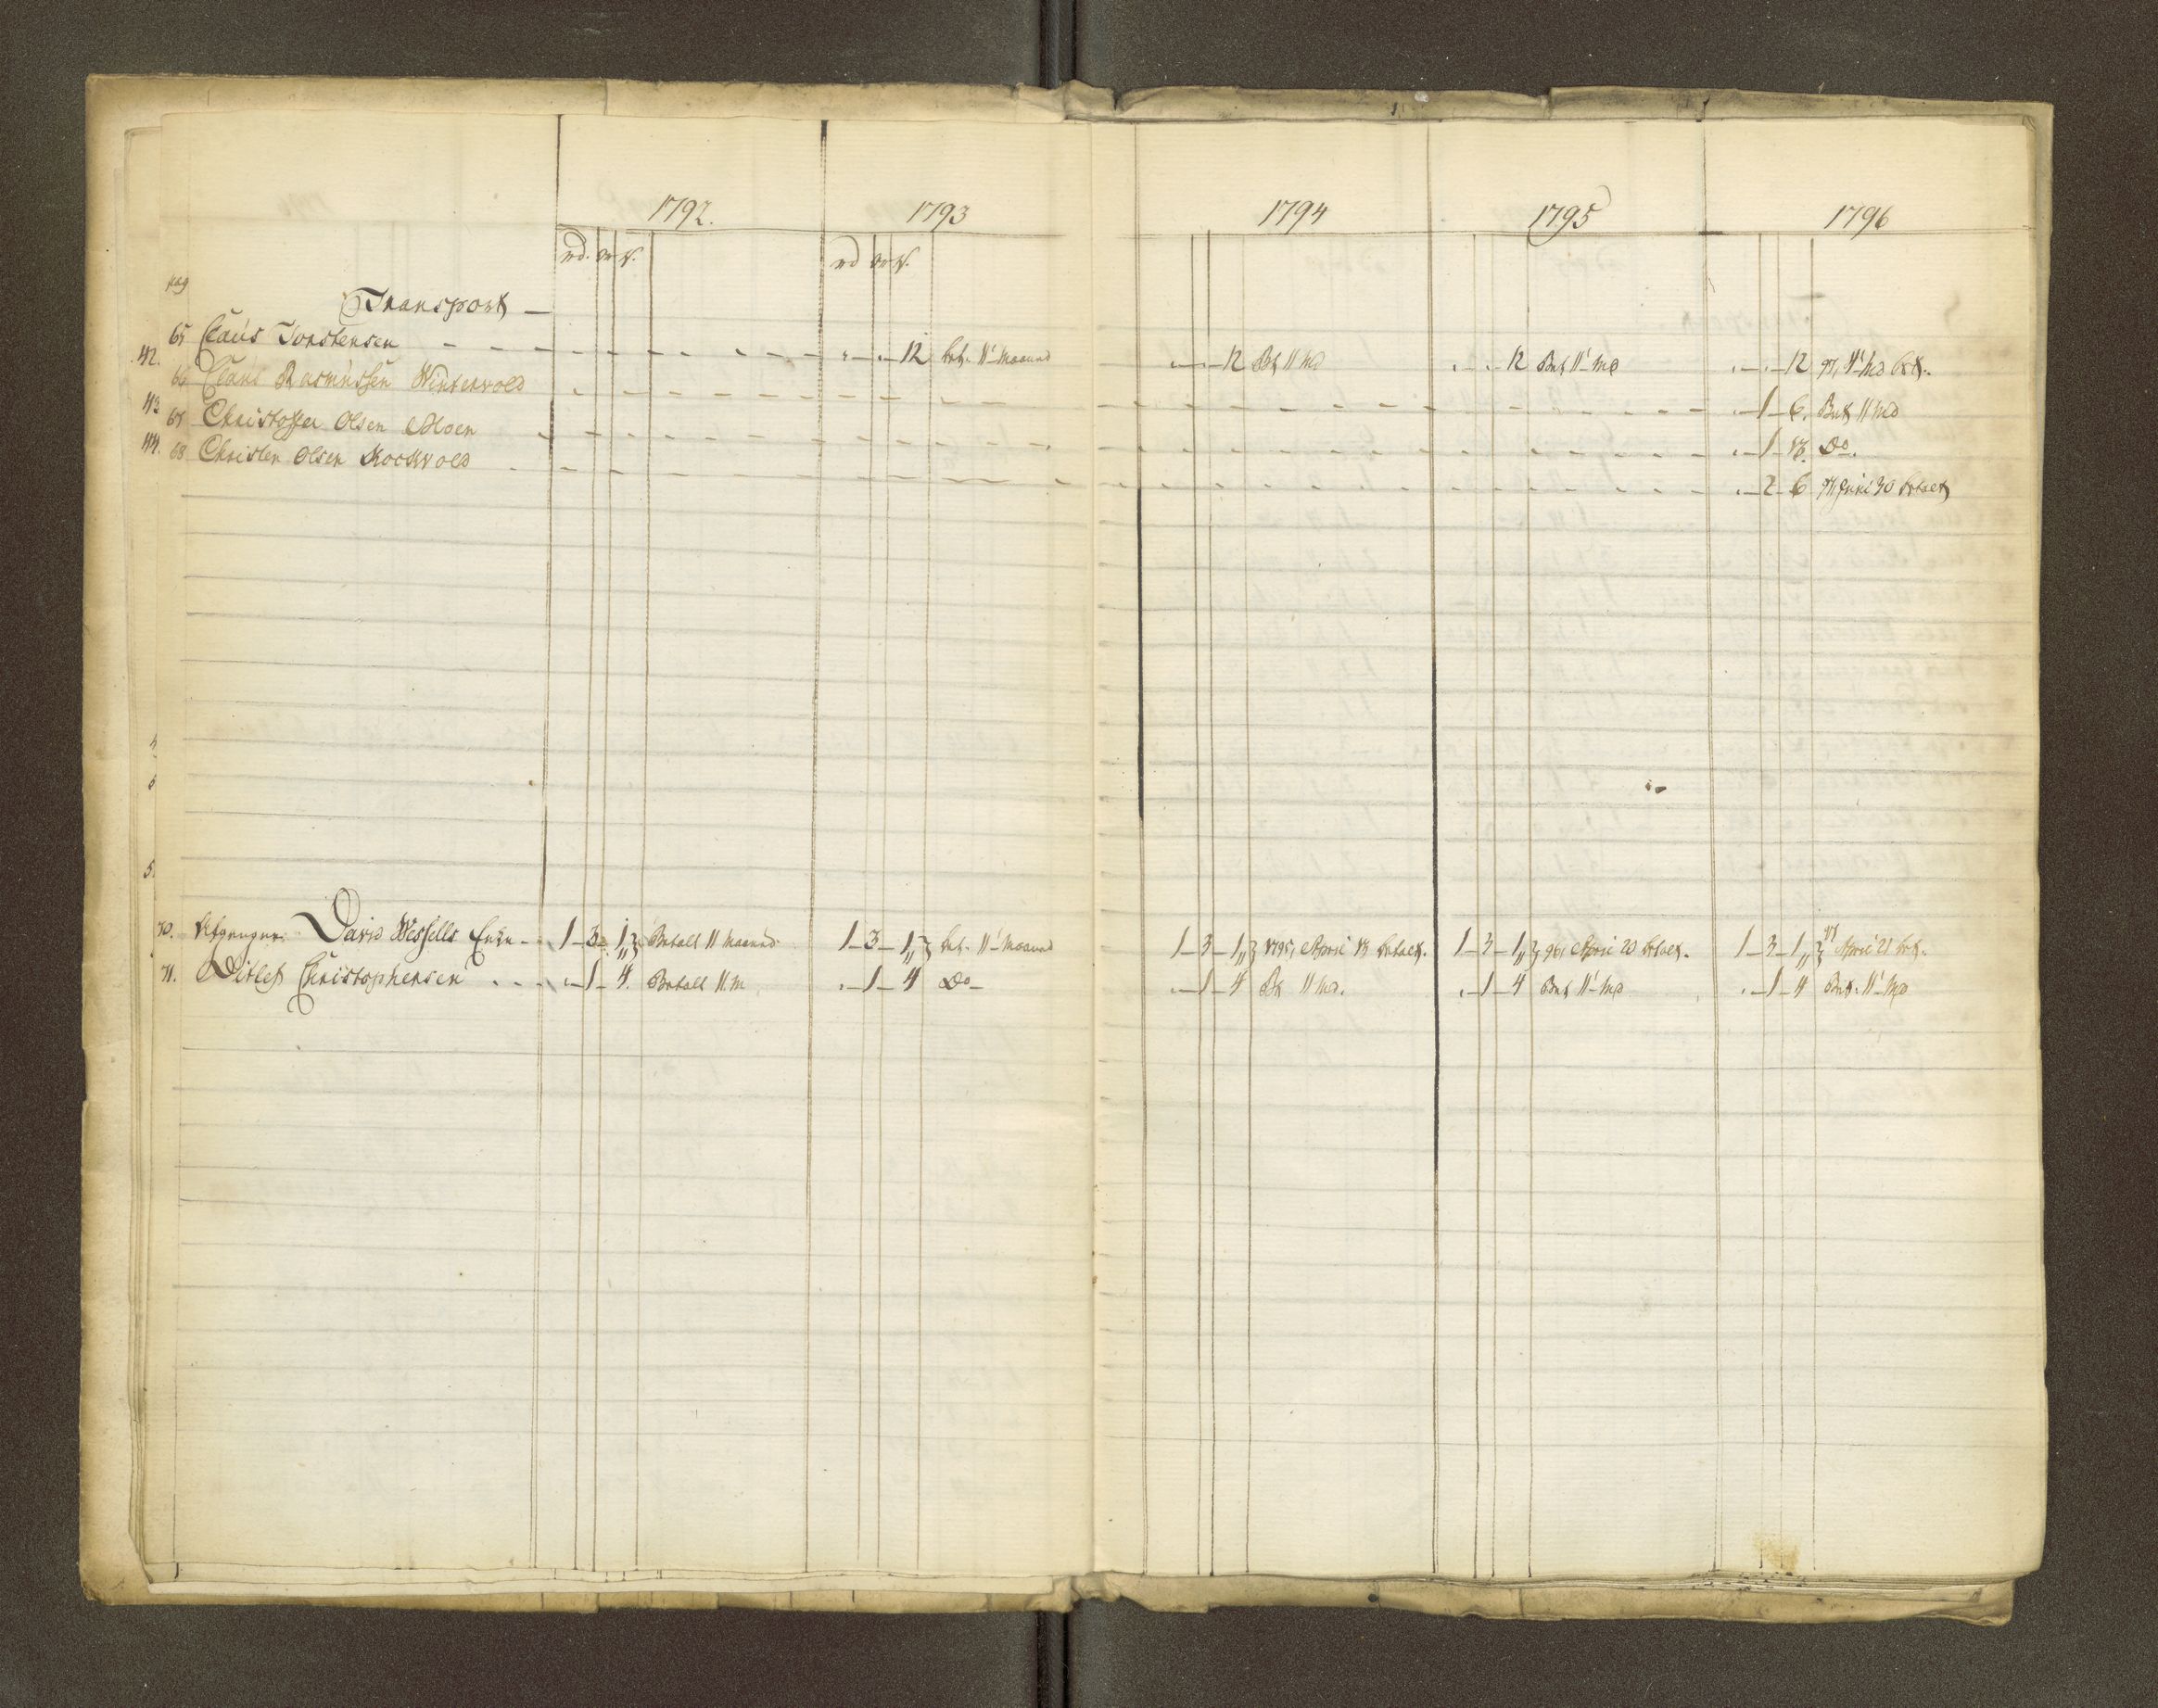 1792. 1793 1794 1795 1796
rd. ort s. rd ort s.
pag
Transport —
65 Claus Torstensen 12 bet. 11te Maaned 12 Bet 11 Md 12 Bet 11te Md 12 97, 11te Md bet.
42. 66 Claus Rasmussen Wintervold 1 - 6. Bet 11 Md
43 67 Christoffer Olsen Moen 1 - 18. Do.
44. 68 Christen Olsen Kockvold 2 - 6 97, Juni 30 betalt
70. Afgangne David Wessells Enke 1 - 3 - 1 Betalt 11 Maaned 1 - 3 - 1 bet. 11te Maaned 1 - 3 - 1 1795, April 18 betalt. 1 - 3 - 1 96, April 20 betalt. 1 - 3 - 1 97 April 21 bet.
71. Ditlef Christophersen 1 - 4. Betalt 11. M 1 - 4 Do 1 - 4 Bt 11 Md. 1 - 4 Bet 11te Md 1 - 4 Bet. 11te Md